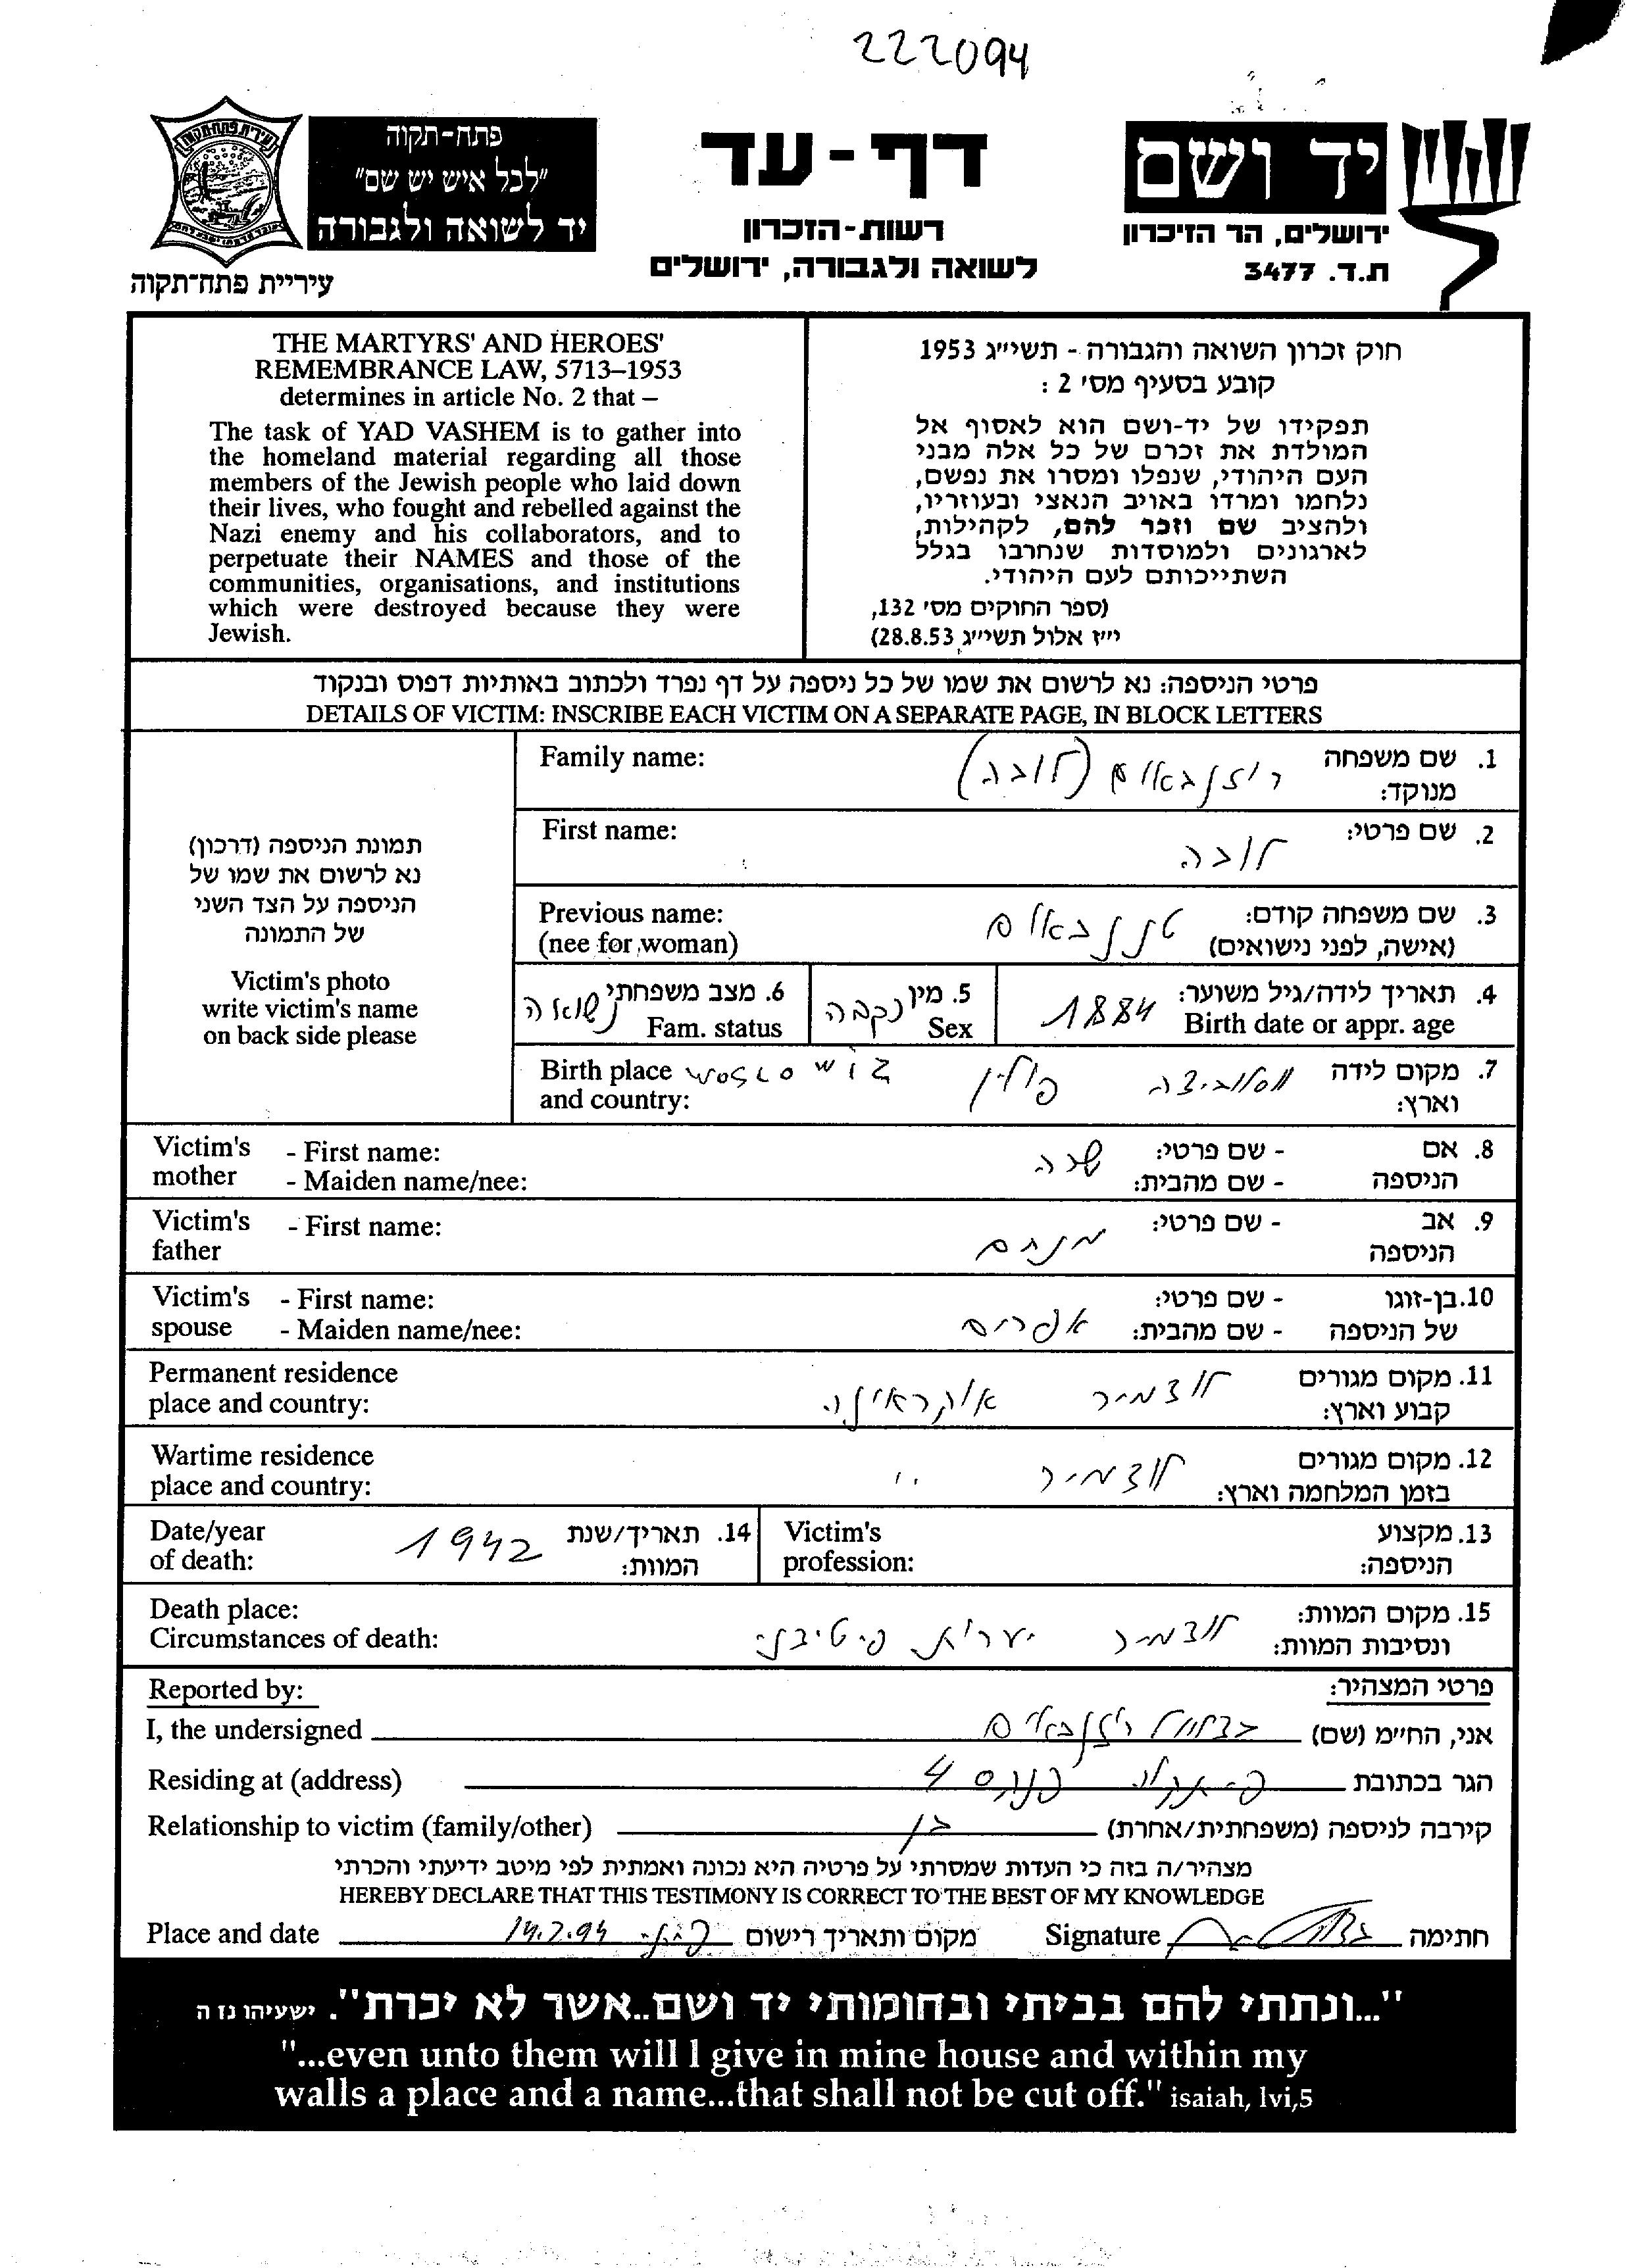 222094
עיריית פתח-תקוה
פתח-תקוה
"לכל איש יש שם"
יד לשואה ולגבורה
עיריית פתח־תקוה
דף-עד
רשות-הזכרון
לשואה ולגבורה, ירושלים
יד ושם
ירושלים, הר הזיכרון
ת.ד. 3477
THE MARTYRS' AND HEROES'
REMEMBRANCE LAW, 5713–1953
determines in article No. 2 that –
The task of YAD VASHEM is to gather into
the homeland material regarding all those
members of the Jewish people who laid down
their lives, who fought and rebelled against the
Nazi enemy and his collaborators, and to
perpetuate their NAMES and those of the
communities, organisations, and institutions
which were destroyed because they were
Jewish.
חוק זכרון השואה והגבורה - תשי״ג 1953
קובע בסעיף מס׳ 2 :
תפקידו של יד-ושם הוא לאסוף אל
המולדת את זכרם של כל אלה מבני
העם היהודי, שנפלו ומסרו את נפשם,
נלחמו ומרדו באויב הנאצי ובעוזריו,
ולהציב שם וזכר להם, לקהילות,
לארגונים ולמוסדות שנחרבו בגלל
השתייכותם לעם היהודי.
(ספר החוקים מס׳ 132,
י״ז אלול תשי״ג 28.8.53)
פרטי הניספה: נא לרשום את שמו של כל ניספה על דף נפרד ולכתוב באותיות דפוס ובנקוד
DETAILS OF VICTIM: INSCRIBE EACH VICTIM ON A SEPARATE PAGE, IN BLOCK LETTERS
תמונת הניספה (דרכון)
נא לרשום את שמו של
הניספה על הצד השני
של התמונה
Victim's photo
write victim's name
on back side please
1. שם משפחה מנוקד: רוזנבאום (לובה) Family name:
2. שם פרטי: לובה First name:
3. שם משפחה קודם: (אישה, לפני נישואים) טננבאום Previous name: (nee for woman)
4. תאריך לידה/גיל משוער: Birth date or appr. age 1884
5. מין Sex נקבה
6. מצב משפחתי Fam. status נשואה
7. מקום לידה וארץ: פולין Birth place and country:
8. אם הניספה - שם פרטי: - שם מהבית: שרה Victim's mother - First name: - Maiden name/nee:
9. אב הניספה - שם פרטי: מנחם Victim's father - First name:
10. בן-זוגו של הניספה - שם פרטי: - שם מהבית: אפרים Victim's spouse - First name: - Maiden name/nee:
11. מקום מגורים קבוע וארץ: לודמיר אוקראינה Permanent residence place and country:
12. מקום מגורים בזמן המלחמה וארץ: לודמיר " Wartime residence place and country:
13. מקצוע הניספה: Victim's profession:
14. תאריך/שנת המוות: 1942 Date/year of death:
15. מקום המוות: ונסיבות המוות: לודמיר יערות Death place: Circumstances of death:
פרטי המצהיר: Reported by:
אני, הח״מ (שם) בצלאל רוזנבאום I, the undersigned
הגר בכתובת 4 Residing at (address)
קירבה לניספה (משפחתית/אחרת) בן Relationship to victim (family/other)
מצהיר/ה בזה כי העדות שמסרתי על פרטיה היא נכונה ואמתית לפי מיטב ידיעתי והכרתי
HEREBY DECLARE THAT THIS TESTIMONY IS CORRECT TO THE BEST OF MY KNOWLEDGE
חתימה Signature מקום ותאריך רישום 14.2.94 Place and date
"...ונתתי להם בביתי ובחומותי יד ושם..אשר לא יכרת". ישעיהו נז ה
"...even unto them will I give in mine house and within my
walls a place and a name...that shall not be cut off." isaiah, lvi,5